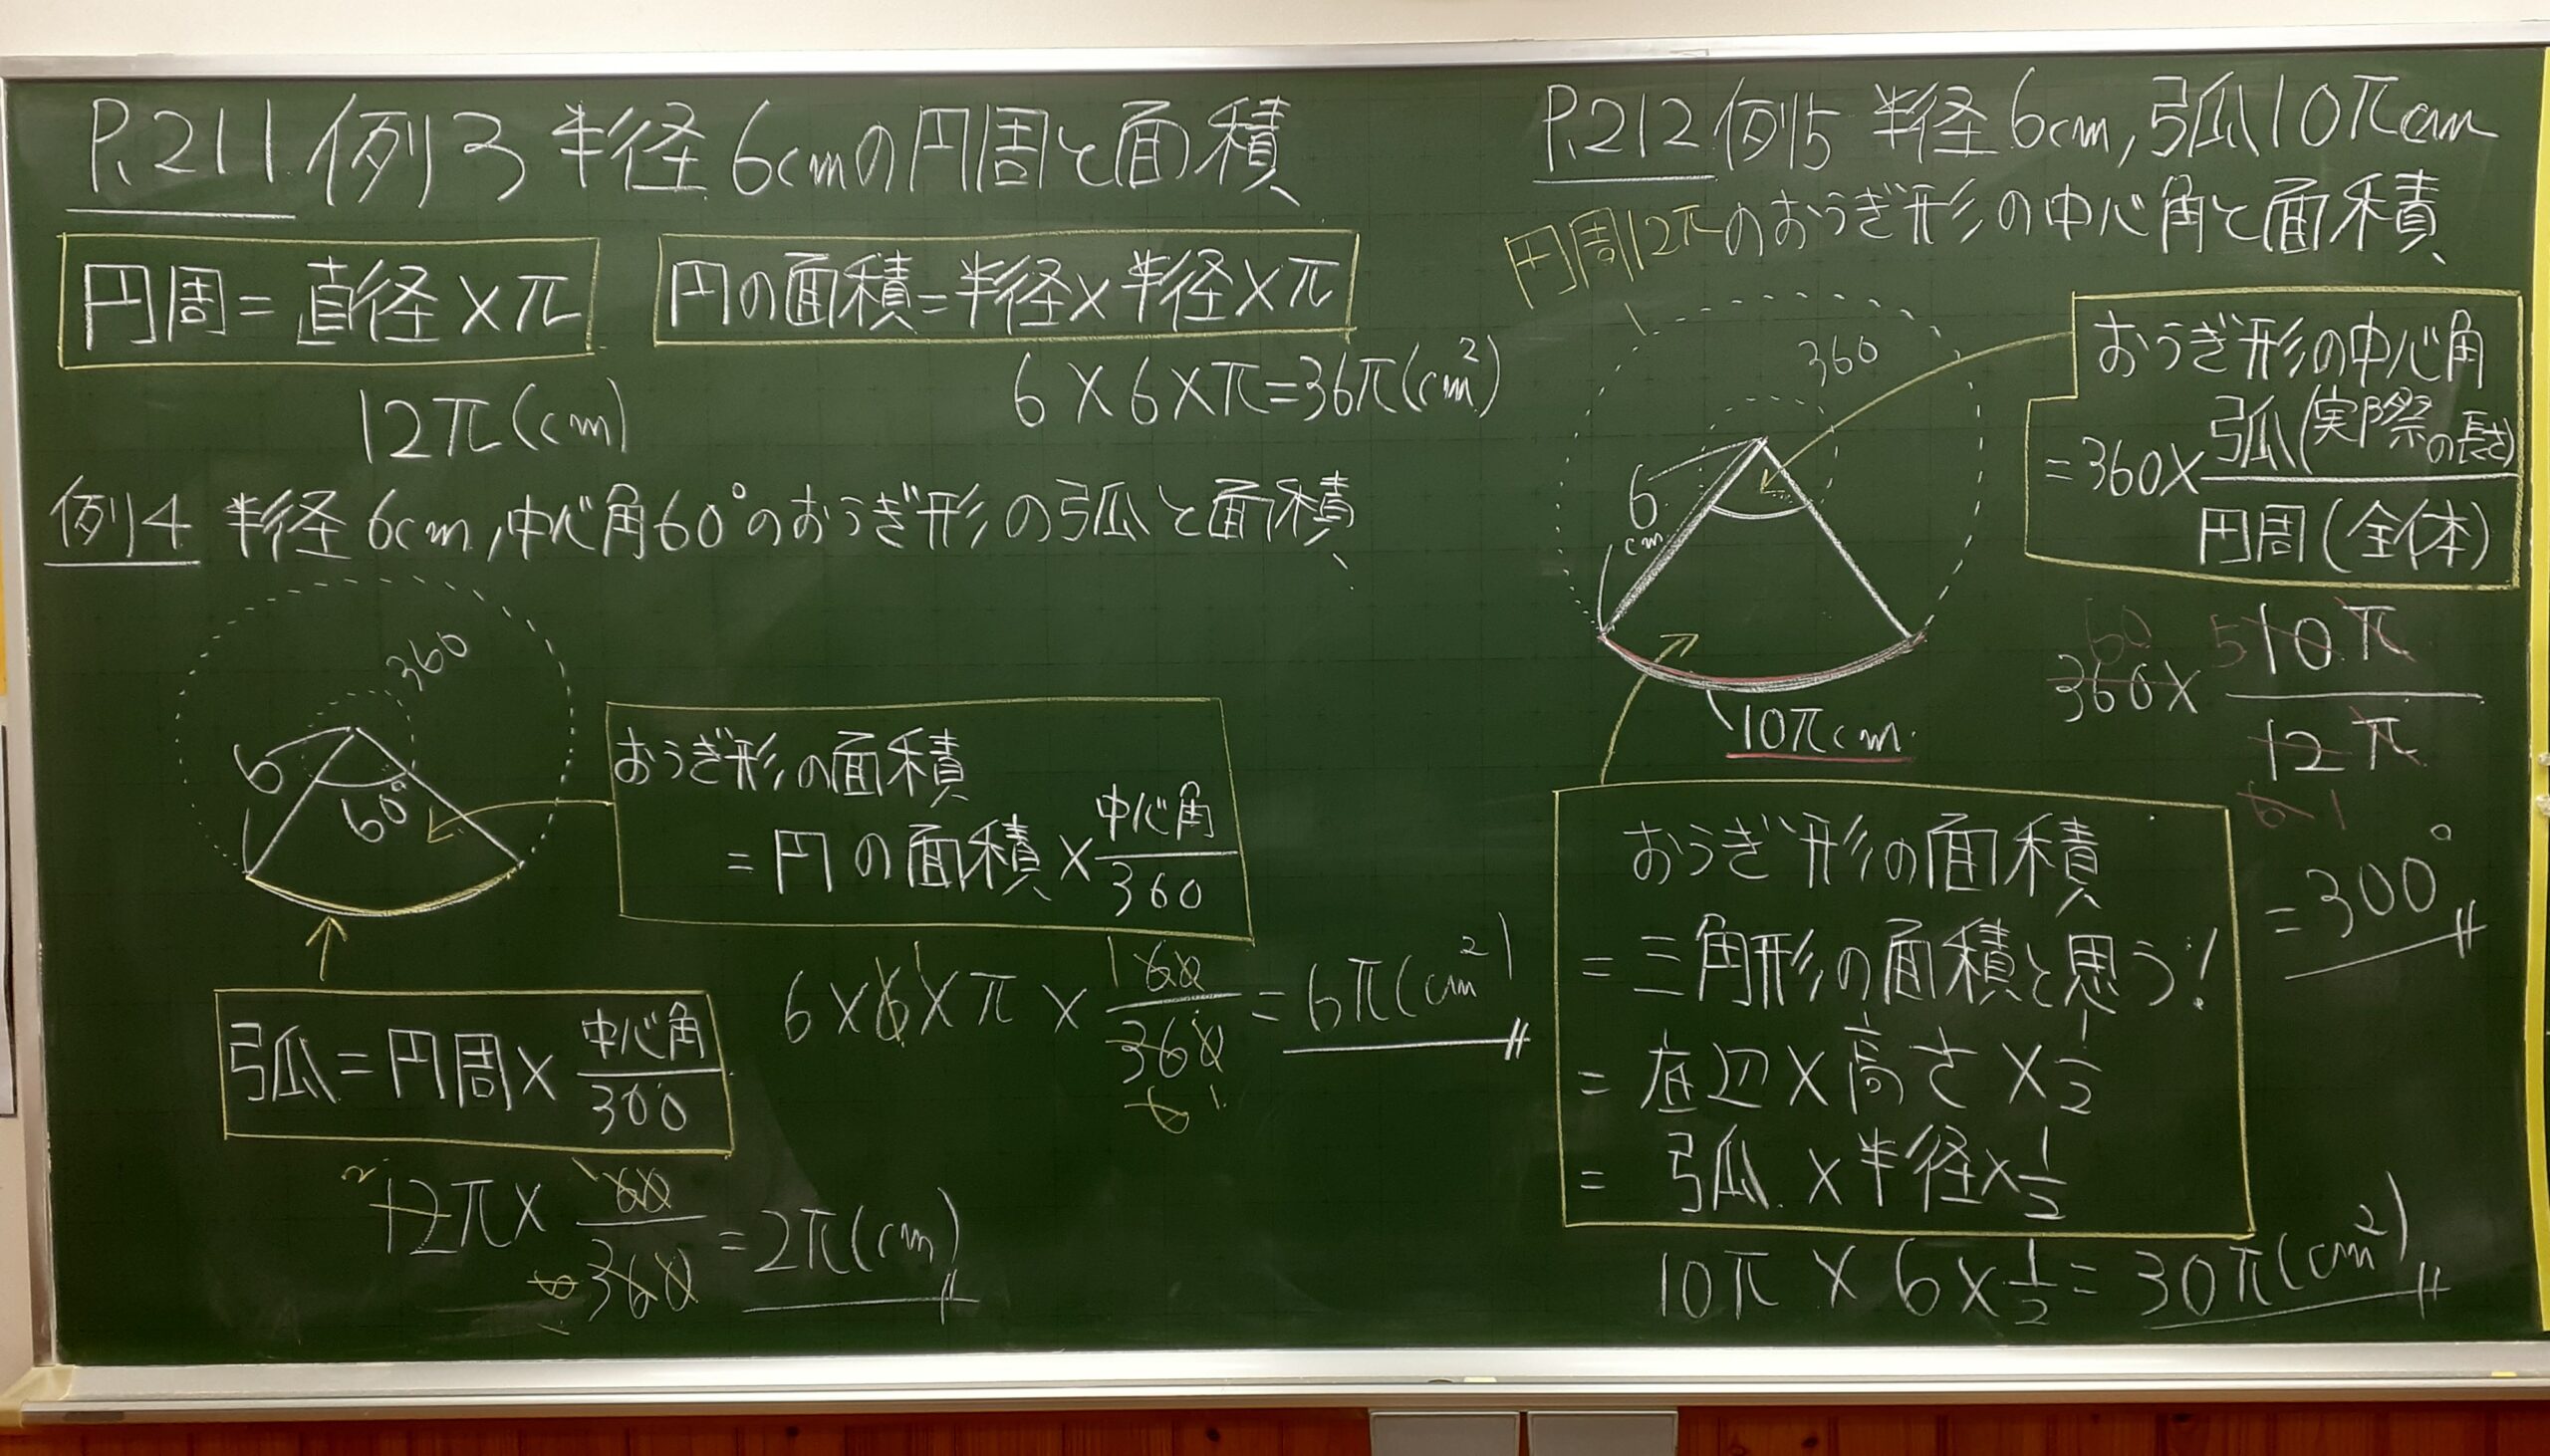 P.211 例3 半径6cmの円周と面積
円周=直径×π
円の面積=半径×半径×π
12π(cm)
6×6×π=36π(cm²)
例4 半径6cm,中心角60°のおうぎ形の弧と面積
360
6
60°
おうぎ形の面積
=円の面積×中心角/360
6×6×π×60/360=6π(cm²)
1
1
6
1
弧=円周×中心角/300
12π×60/360=2π(cm)
2
1
6
P.212 例5 半径6cm,弧10πcm
のおうぎ形の中心角と面積
円周12π
360
6
cm
10πcm
おうぎ形の中心角
=360×弧(実際の長さ)/円周(全体)
360×10π/12π
60
5
6
1
=300°
おうぎ形の面積
=三角形の面積と思う!
=底辺×高さ×1/2
=弧×半径×1/2
10π×6×1/2=30π(cm²)